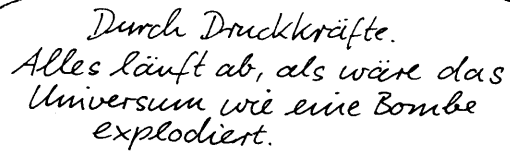 Durch Druckkräfte.
Alles läuft ab, als wäre das
Universum wie eine Bombe
explodiert.